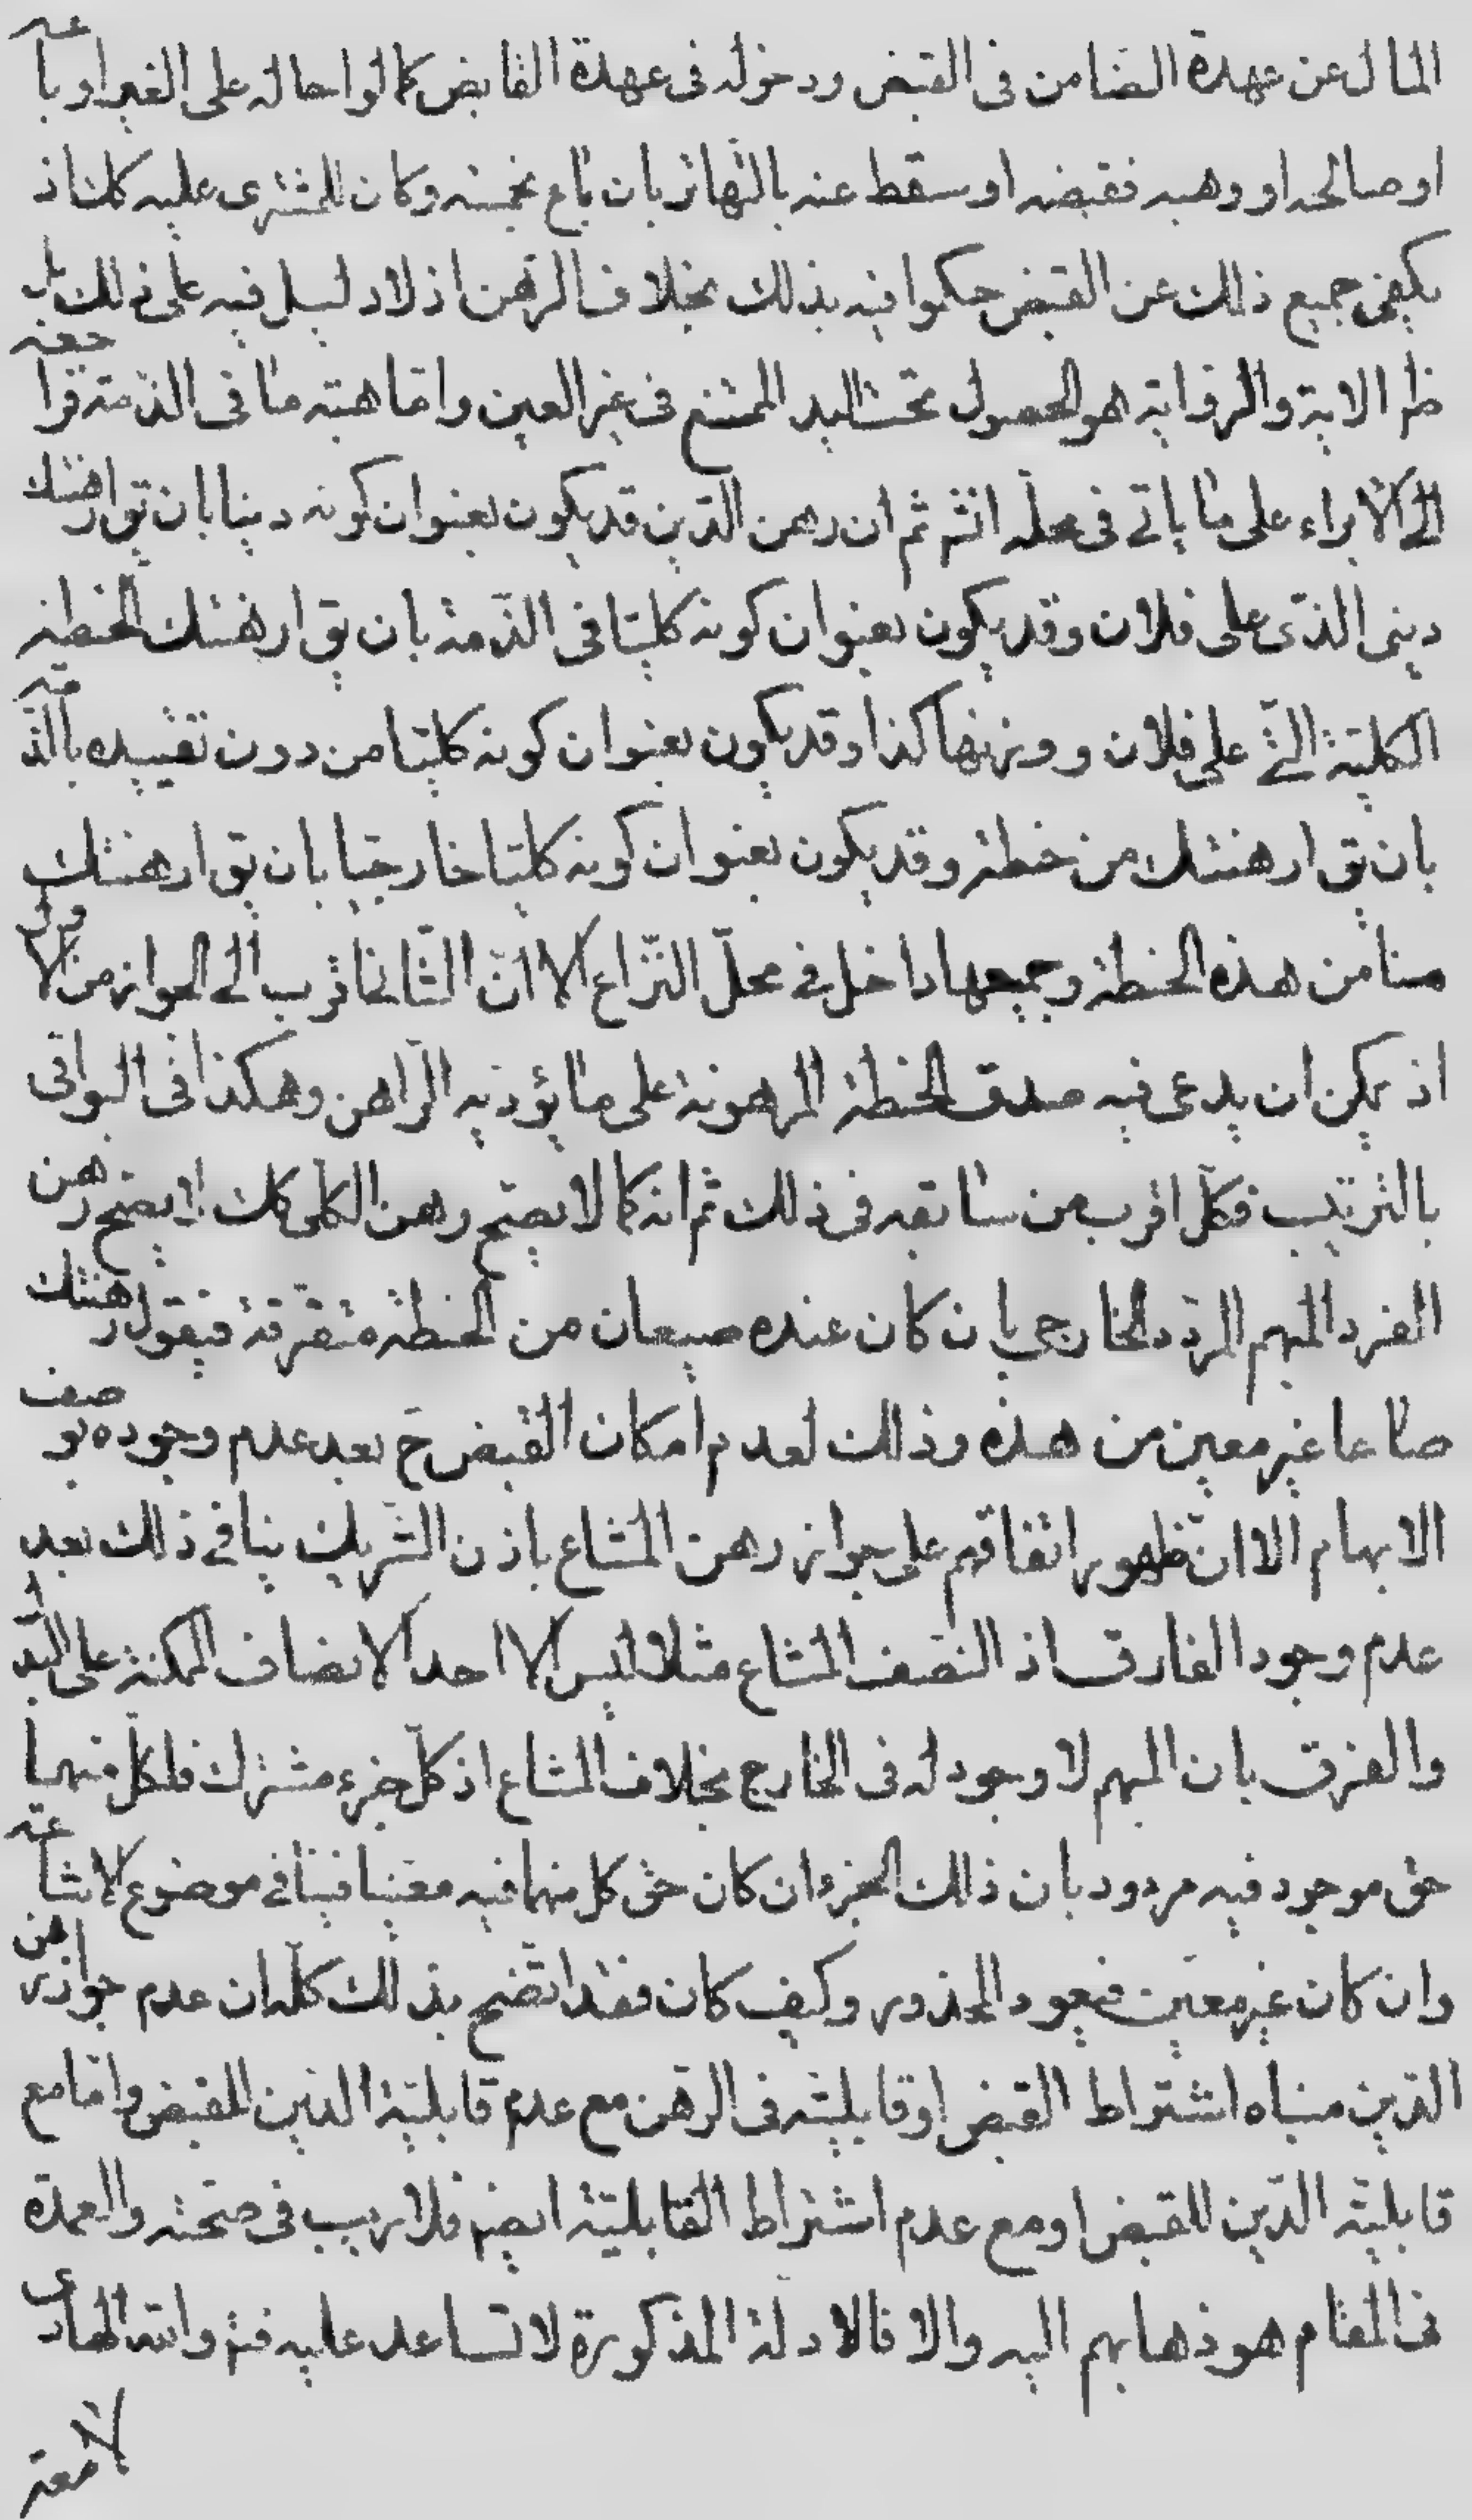 المال عن عهدة الضامن فى القبض ودخوله فى عهدة القابض كما لو احاله على الغير او باعه
او صالحه او وهبه فقبضه او سقط عنه بالتهاتر بان باع بخمسه وكان للمشترى عليه كك اذ
يكفى جميع ذلك عن القبض حكموا فيه بذلك بخلاف الرهن اذ لا دليل فيه على ذلك بل
ظ الاية والرواية هو الحصول تحت اليد الممتنع فى غير العين واما هبته ما فى الذمة فراجعة
الى الابراء على ما ياتى فى محله انش ثم ان رهن الدين قد يكون بعنوان كونه دينا بان يق ارهنتك
دينى الذى على فلان وقد يكون بعنوان كونه كليا فى الذمة بان يق ارهنتك الحنطة
الكلية التى على فلان ووزنها كذا وقد يكون بعنوان كونه كليا من دون تقييده بالذمية
بان يق ارهنتك من حنطة وقد يكون بعنوان كونه كليا خارجيا بان يق ارهنتك
منا من هذه الحنطة وجميعها داخل فى محل النزاع الا ان الثانى اقرب الى الجواز من الاول
اذ يمكن ان يدعى فيه صدق الحنطة المرهونة على ما يؤديه الراهن وهكذا فى البواقى
بالترتيب فكل اقرب من سابقه فى ذلك ثم انه كما لا يصح رهن الكلى كك لا يصح رهن
الفرد المبهم المردد الخارجى بان كان عنده صيعان من الحنطة متفرقة فيقول رهنتك
صاعا غير معين من هذه وذلك لعدم امكان القبض ح بعد عدم وجوده بوصف
الابهام الا ان ظهور اتفاقهم على جواز رهن المشاع باذن الشريك ينافى ذلك بعد
عدم وجود الفارق اذ النصف المشاع مثلا ليس الا احد الانصاف الممكنة على البدل
والفرق بان المبهم لا وجود له فى الخارج بخلاف المشاع اذ كل جزء مشترك فلكل منهما
حق موجود فيه مردود بان ذلك الجزء ان كان حق كل منهما فيه معينا فينافى موضوع الاشاعة
وان كان غير معين فيعود المحذور وكيف كان فقد اتضح بذلك كله ان عدم جواز رهن
الدين مبناه اشتراط القبض او قابليته فى الرهن مع عدم قابلية الدين للقبض واما مع
قابلية الدين للقبض او مع عدم اشتراط القابلية ايضا فلا ريب فى صحته والعمدة
فى المقام هو ذهابهم اليه والا فالادلة المذكورة لا تساعد عليه فت والله الهادى
لامعة